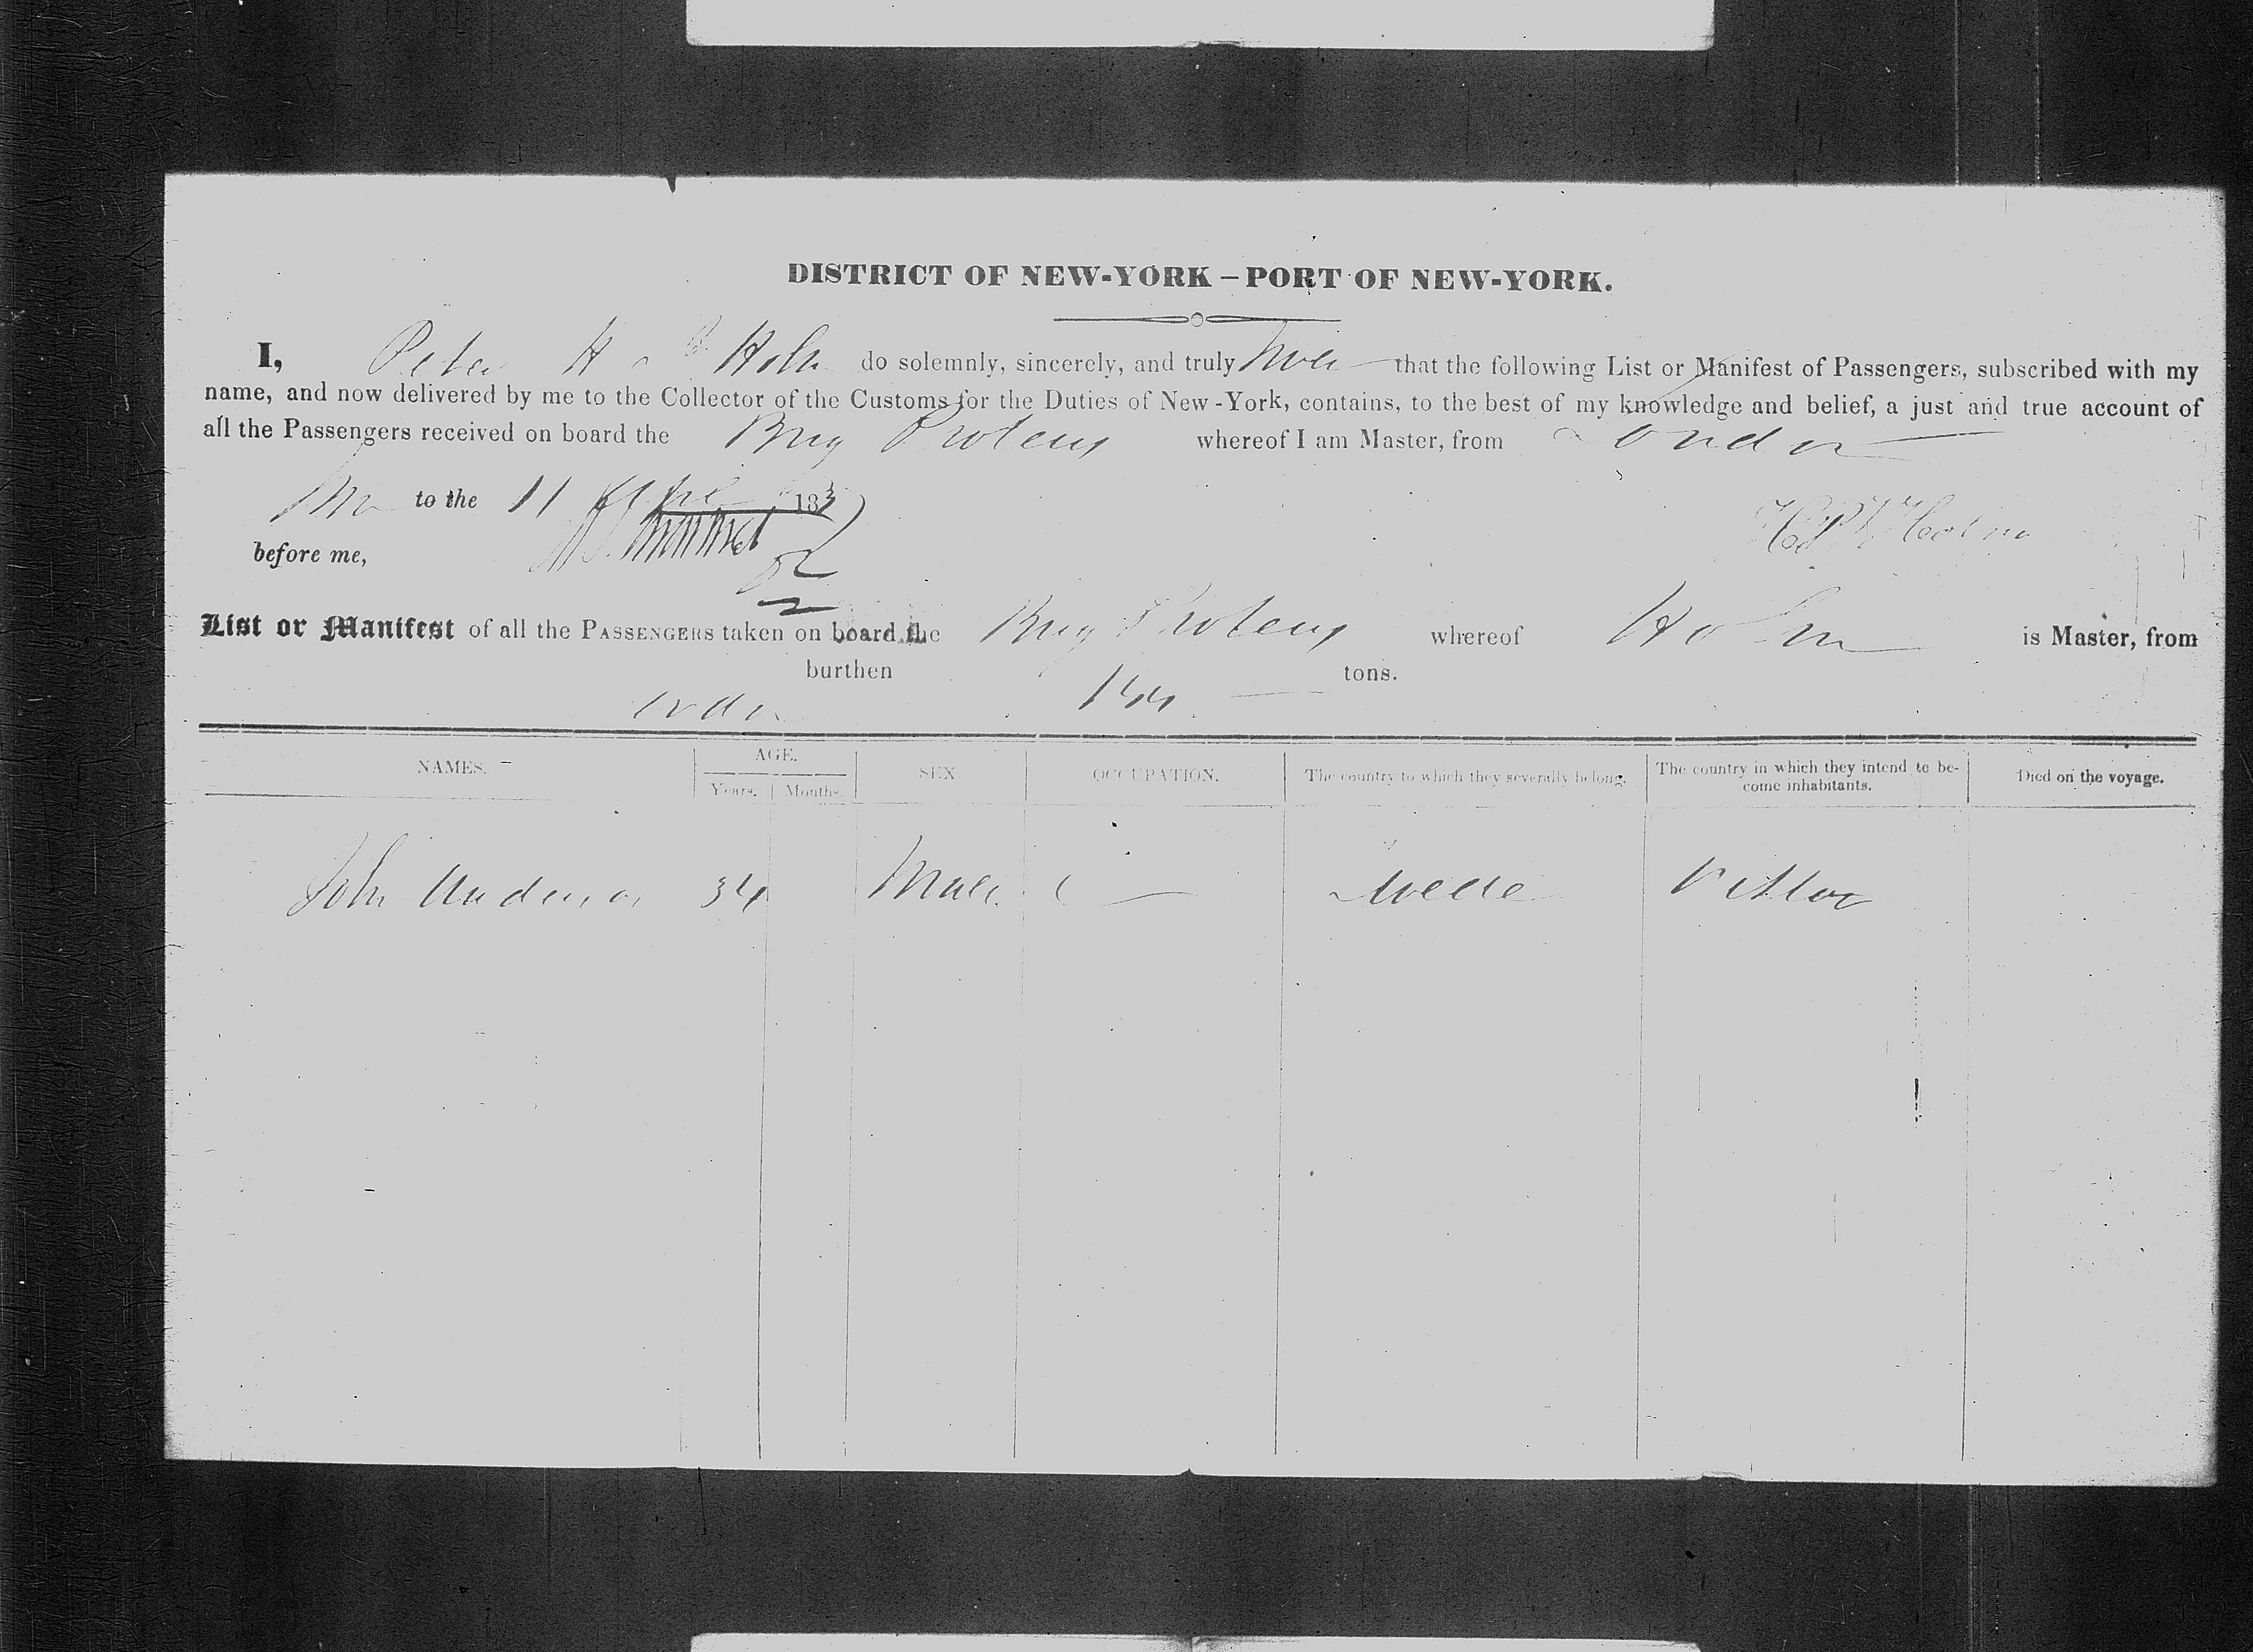 DISTRICT OF NEW-YORK – PORT OF NEW-YORK.
I, Peter H Holm do solemnly, sincerely, and truly that the following List or Manifest of Passengers, subscribed with my
name, and now delivered by me to the Collector of the Customs for the Duties of New-York, contains, to the best of my knowledge and belief, a just and true account of
all the Passengers received on board the Brig Proteus whereof I am Master, from London
to the 11 April 183
before me,
Holm
List or Manifest of all the PASSENGERS taken on board the Brig Proteus whereof Holm is Master, from
burthen tons.
144
NAMES. AGE. SEX OCCUPATION. The country to which they severally belong. The country in which they intend to be-
come inhabitants. Died on the voyage.
Years. Months.
John Anderson 34 Male Swede